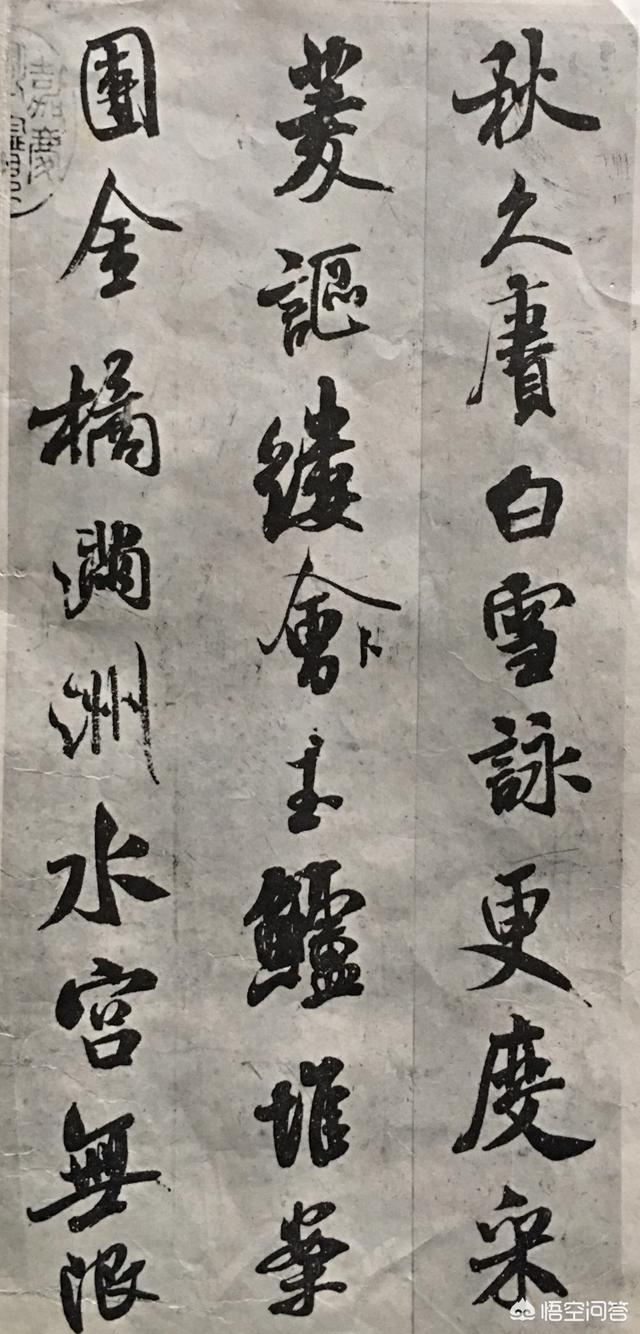 秋久賡白雪詠更度采
菱謳縷會玉鱸堆案
團金橘滿洲水宮無限
嘉慶
悟空问答